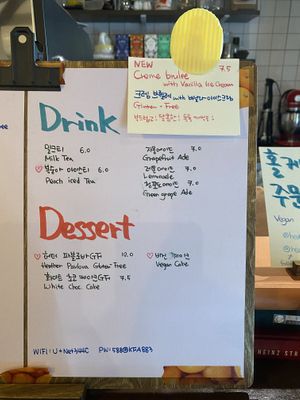 NEW
Creme brulee 7.5
with Vanilla Ice Cream
크렘 브륄레 with 바닐라 아이스크림
Gluten - Free
Drink
밀크티 6.0
Milk Tea
♡ 복숭아 아이스티 6.0
Peach iced Tea
자몽에이드 7.0
Grapefruit Ade
레몬에이드 7.0
Lemonade
청포도에이드 7.0
Green grape Ade
Dessert
♡ 헤더 파블로바 GF 12.0
Heather Pavlova Gluten-Free
화이트 초코 케이크 GF 7.5
White Choc Cake
♡ 비건 케이크
Vegan Cake
홀케
주문
Vegan
HEINZ
WIFI: U+Net344C PW: 588@KFA883